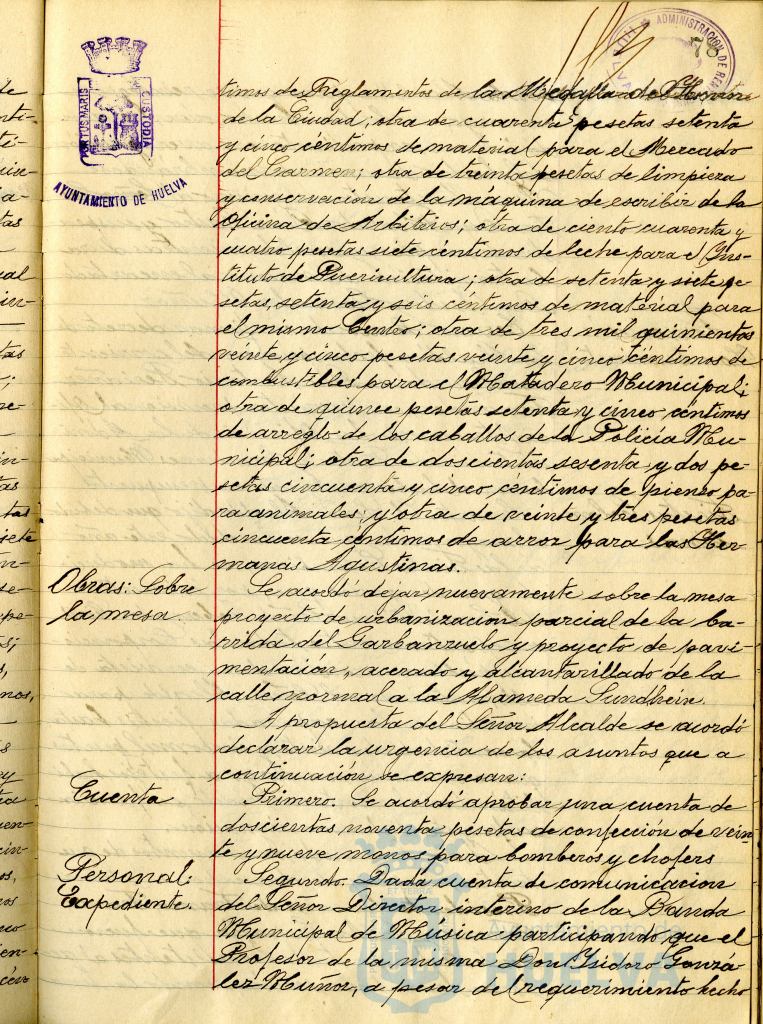 78
ADMINISTRACION DE
PORTUS MARIS
CUSTODIA
AYUNTAMIENTO DE HUELVA
timos de Reglamentos de la Medalla de
de la Ciudad; otra de cuarenta pesetas setenta
y cinco céntimos de material para el Mercado
del Carmen; otra de treinta pesetas de limpieza
y conservación de la máquina de escribir de la
Oficina de Arbitrios; otra de ciento cuarenta y
cuatro pesetas siete céntimos de leche para el Ins-
tituto de Puericultura; otra de setenta y siete pe-
setas, setenta y seis centimos de material para
el mismo Centro; otra de tres mil quinientas
veinte y cinco pesetas veinte y cinco céntimos de
combustibles para el Matadero Municipal;
otra de quince pesetas setenta y cinco céntimos
de arreglo de los caballos de la Policía Mu-
nicipal; otra de doscientas sesenta y dos pe-
setas cincuenta y cinco centimos de pienso pa-
ra animales; y otra de veinte y tres pesetas
cincuenta centimos de arroz para las Her
manas Agustinas.
Obras: Sobre
la mesa.
Se acordó dejar nuevamente sobre la mesa
proyecto de urbanización parcial de la ba-
rrida del Garbanzuelo y proyecto de pavi-
mentación, acerado y alcantarillado de la
calle normal a la Alameda Sundhein.
A propuesta del Señor Alcalde se acordó
declarar la urgencia de los asuntos que a
continuación se expresan:
Cuenta
Primero. Se acordó aprobar una cuenta de
doscientas noventa pesetas de confección de vein-
te y nueve monos para bomberos y chofers
Personal:
Expediente.
Segundo. Dada cuenta de comunicacion
del Señor Director interino de la Banda
Municipal de Música participando que el
Profesor de la misma Don Isidoro Gonzá-
lez Muñoz, a pesar del requerimiento hecho